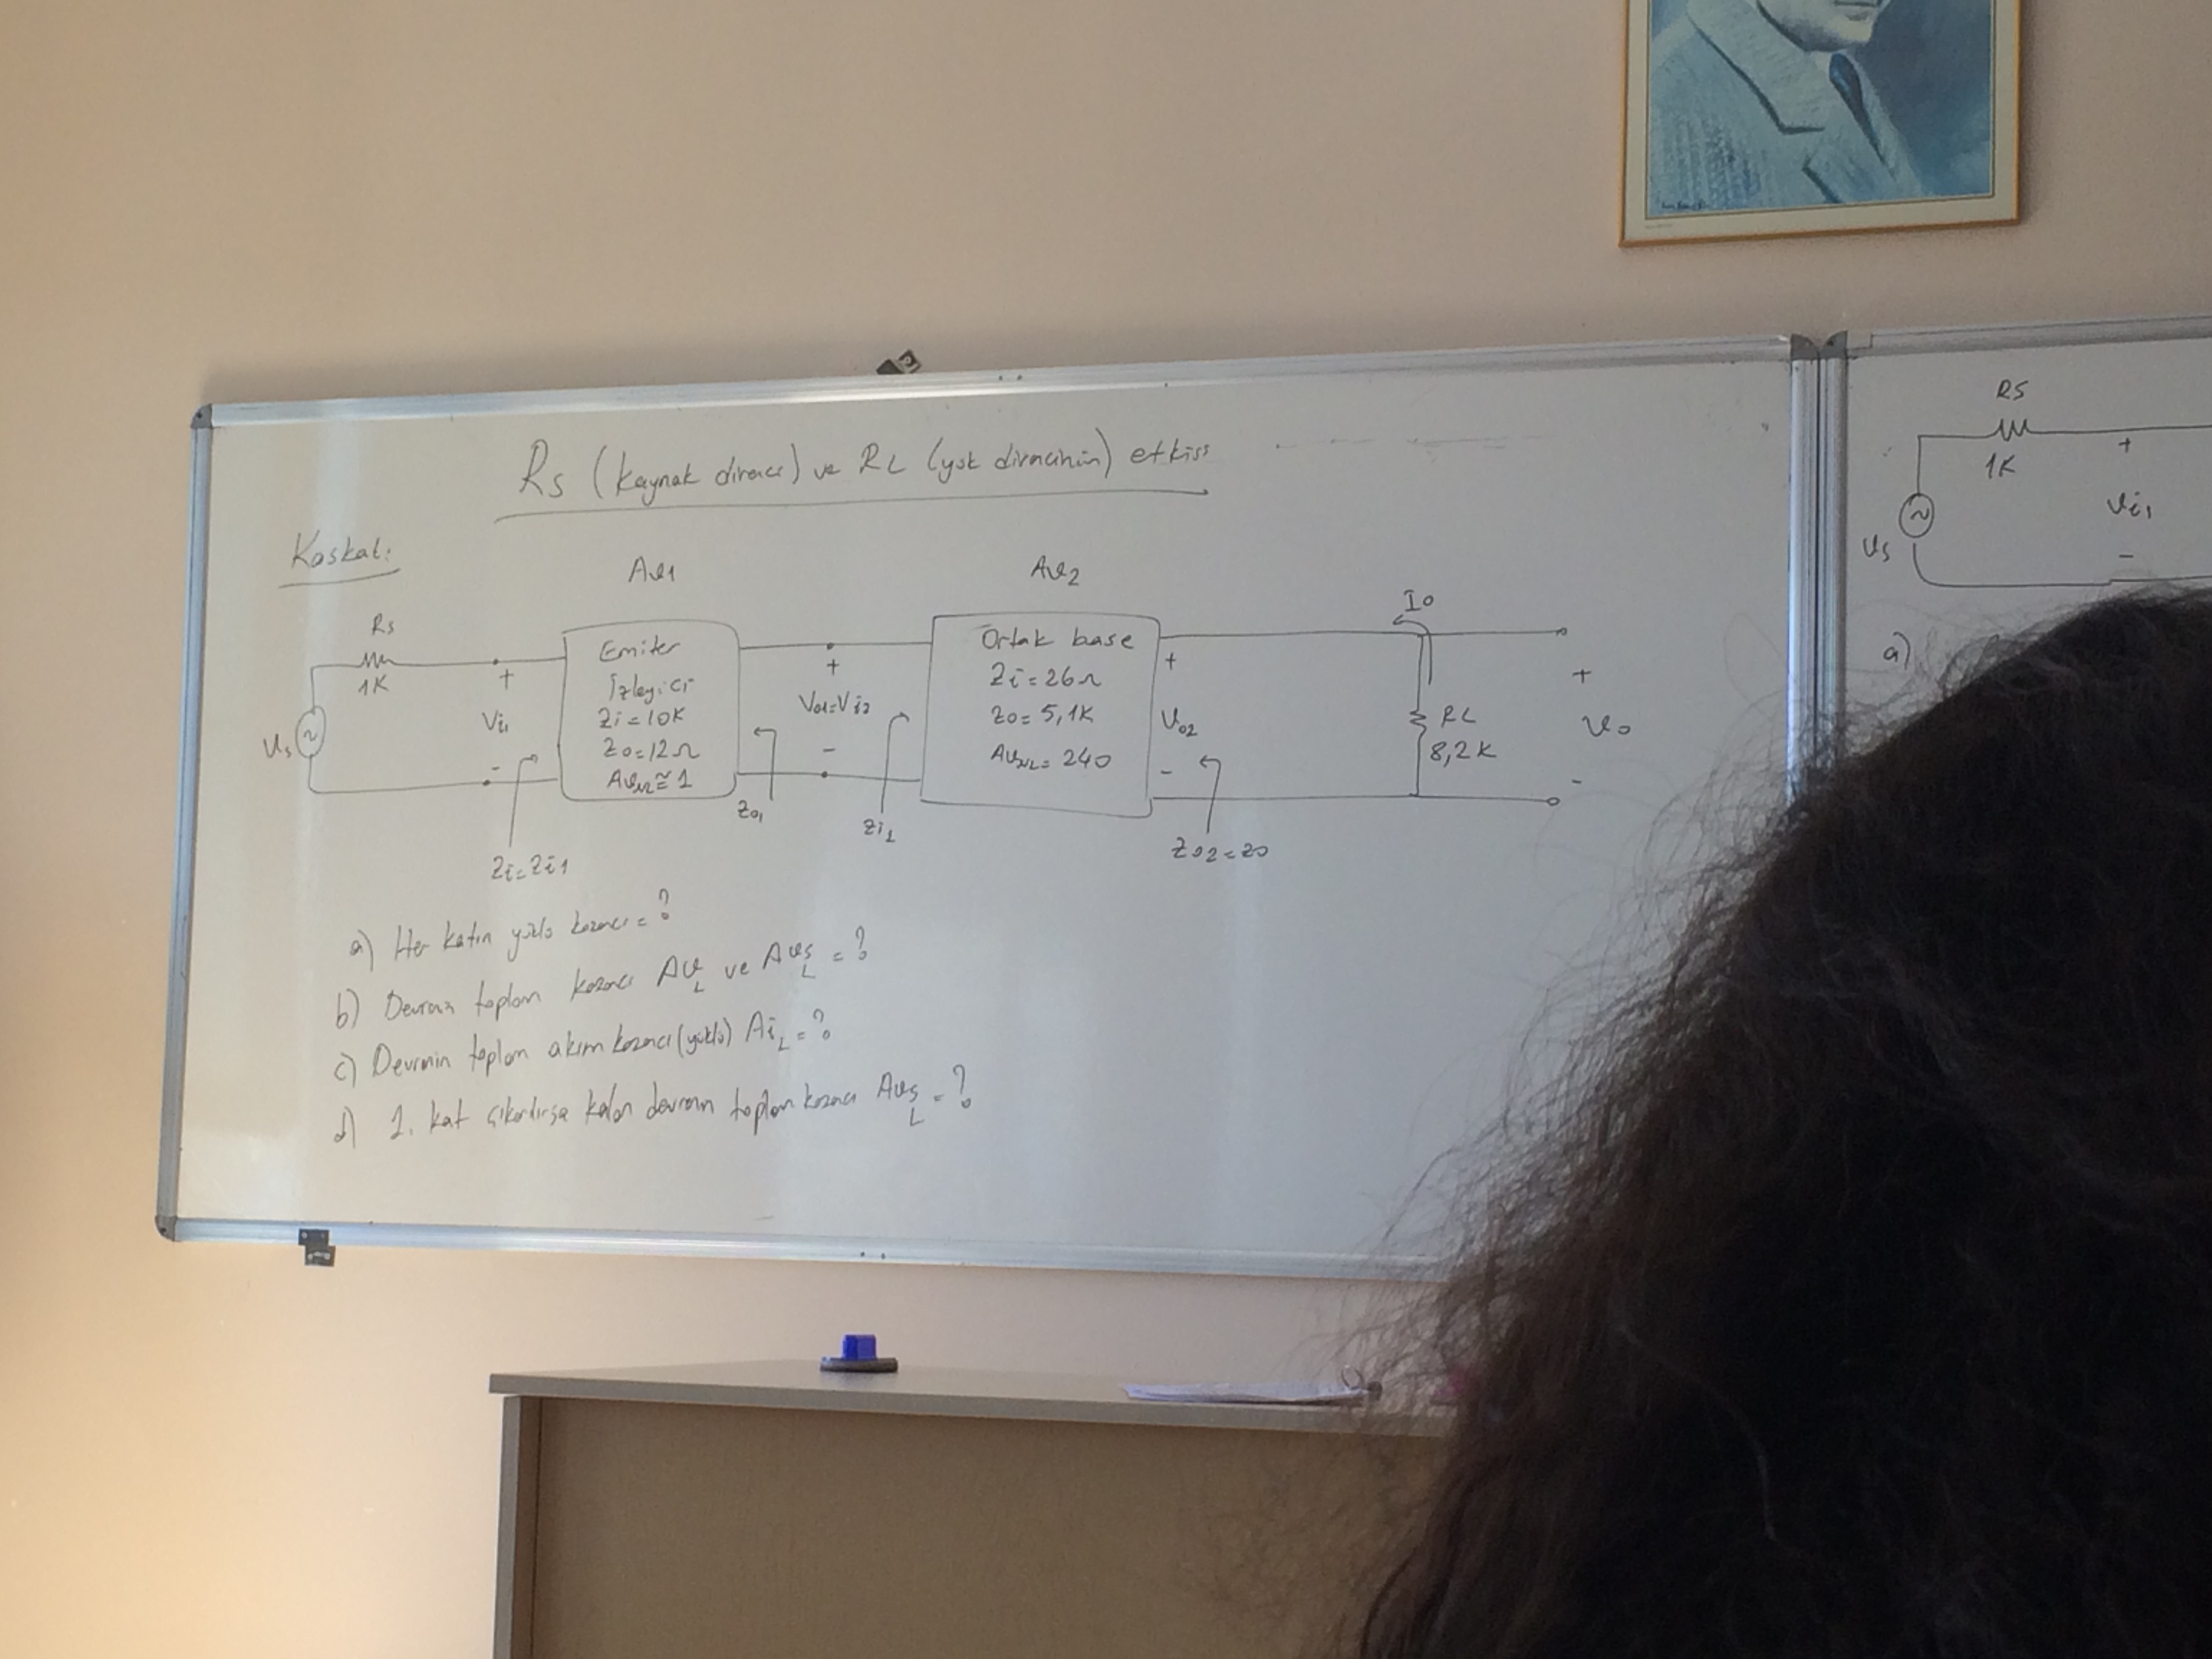 Rs (kaynak direnci) ve RL (yük direncinin) etkisi
Kaskat:
Av1
Av2
Rs
1K
Vs
+
Vi1
-
Zi=Zi1
Emiter
İzleyici
Zi=10K
Zo=12Ω
AvNL≅1
Zo1
+
Vo1=Vi2
-
Zi2
Ortak base
Zi=26Ω
Zo=5,1K
AvNL=240
+
Vo2
-
Zo2=Zo
Io
RL
8,2K
+
Vo
-
a) Her katın yüklü kazancı=?
b) Devrenin toplam kazancı AvL ve AvsL=?
c) Devrenin toplam akım kazancı (yüklü) AiL=?
d) 1. kat çıkarılırsa kalan devrenin toplam kazancı AvsL=?
RS
1K
+
Vi1
-
Vs
a)